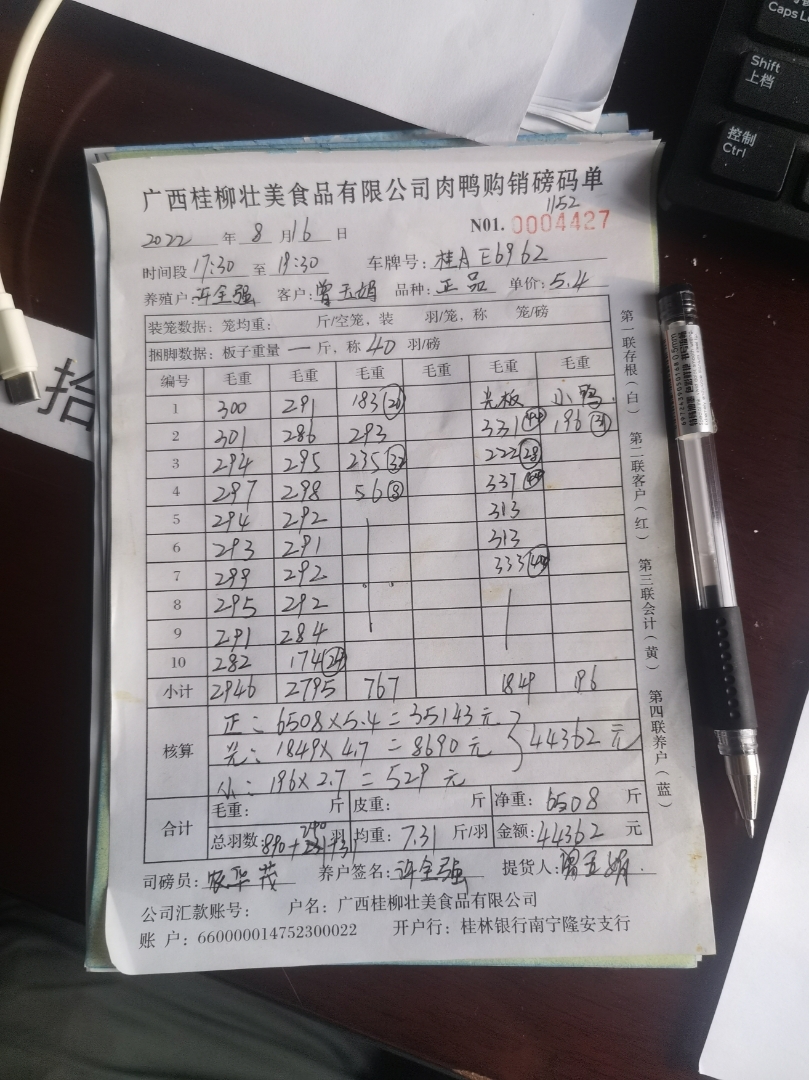 广西桂柳壮美食品有限公司肉鸭购销磅码单
1152
2022 年 8 月 16 日 N01. 0004427
时间段 17:30 至 19:30 车牌号: 桂A E6962
养殖户 许全强 客户: 曾玉娟 品种: 正品 单价: 5.4
装笼数据: 笼均重: 斤/空笼, 装 羽/笼, 称 笼/磅
捆脚数据: 板子重量 一 斤, 称 40 羽/磅
编号 毛重 毛重 毛重 毛重 毛重 毛重
1 300 291 183 (26) 光板 小鸭
2 301 286 293 331 (44) 196 (31)
3 294 295 235 (32) 222 (28)
4 297 298 56 (8) 337 (44)
5 294 292 313
6 293 291 313
7 299 292 333 (44)
8 295 292
9 291 284
10 282 174 (24)
小计 2946 2795 767 1849 196
核算 正: 6508×5.4=35143元
光: 1849×4.7=8690元 } 44362元
小: 196×2.7=529元
合计 毛重: 斤 皮重: 斤 净重: 6508 斤
总羽数: 890+ 羽 均重: 7.31 斤/羽 金额: 44362 元
司磅员: 农华茂 养户签名: 许全强 提货人: 曾玉娟
公司汇款账号: 户名: 广西桂柳壮美食品有限公司
账 户: 660000014752300022 开户行: 桂林银行南宁隆安支行
第一联存根(白) 第二联客户(红) 第三联会计(黄) 第四联养户(蓝)
拾
Caps L
Shift
上档
控制
Ctrl